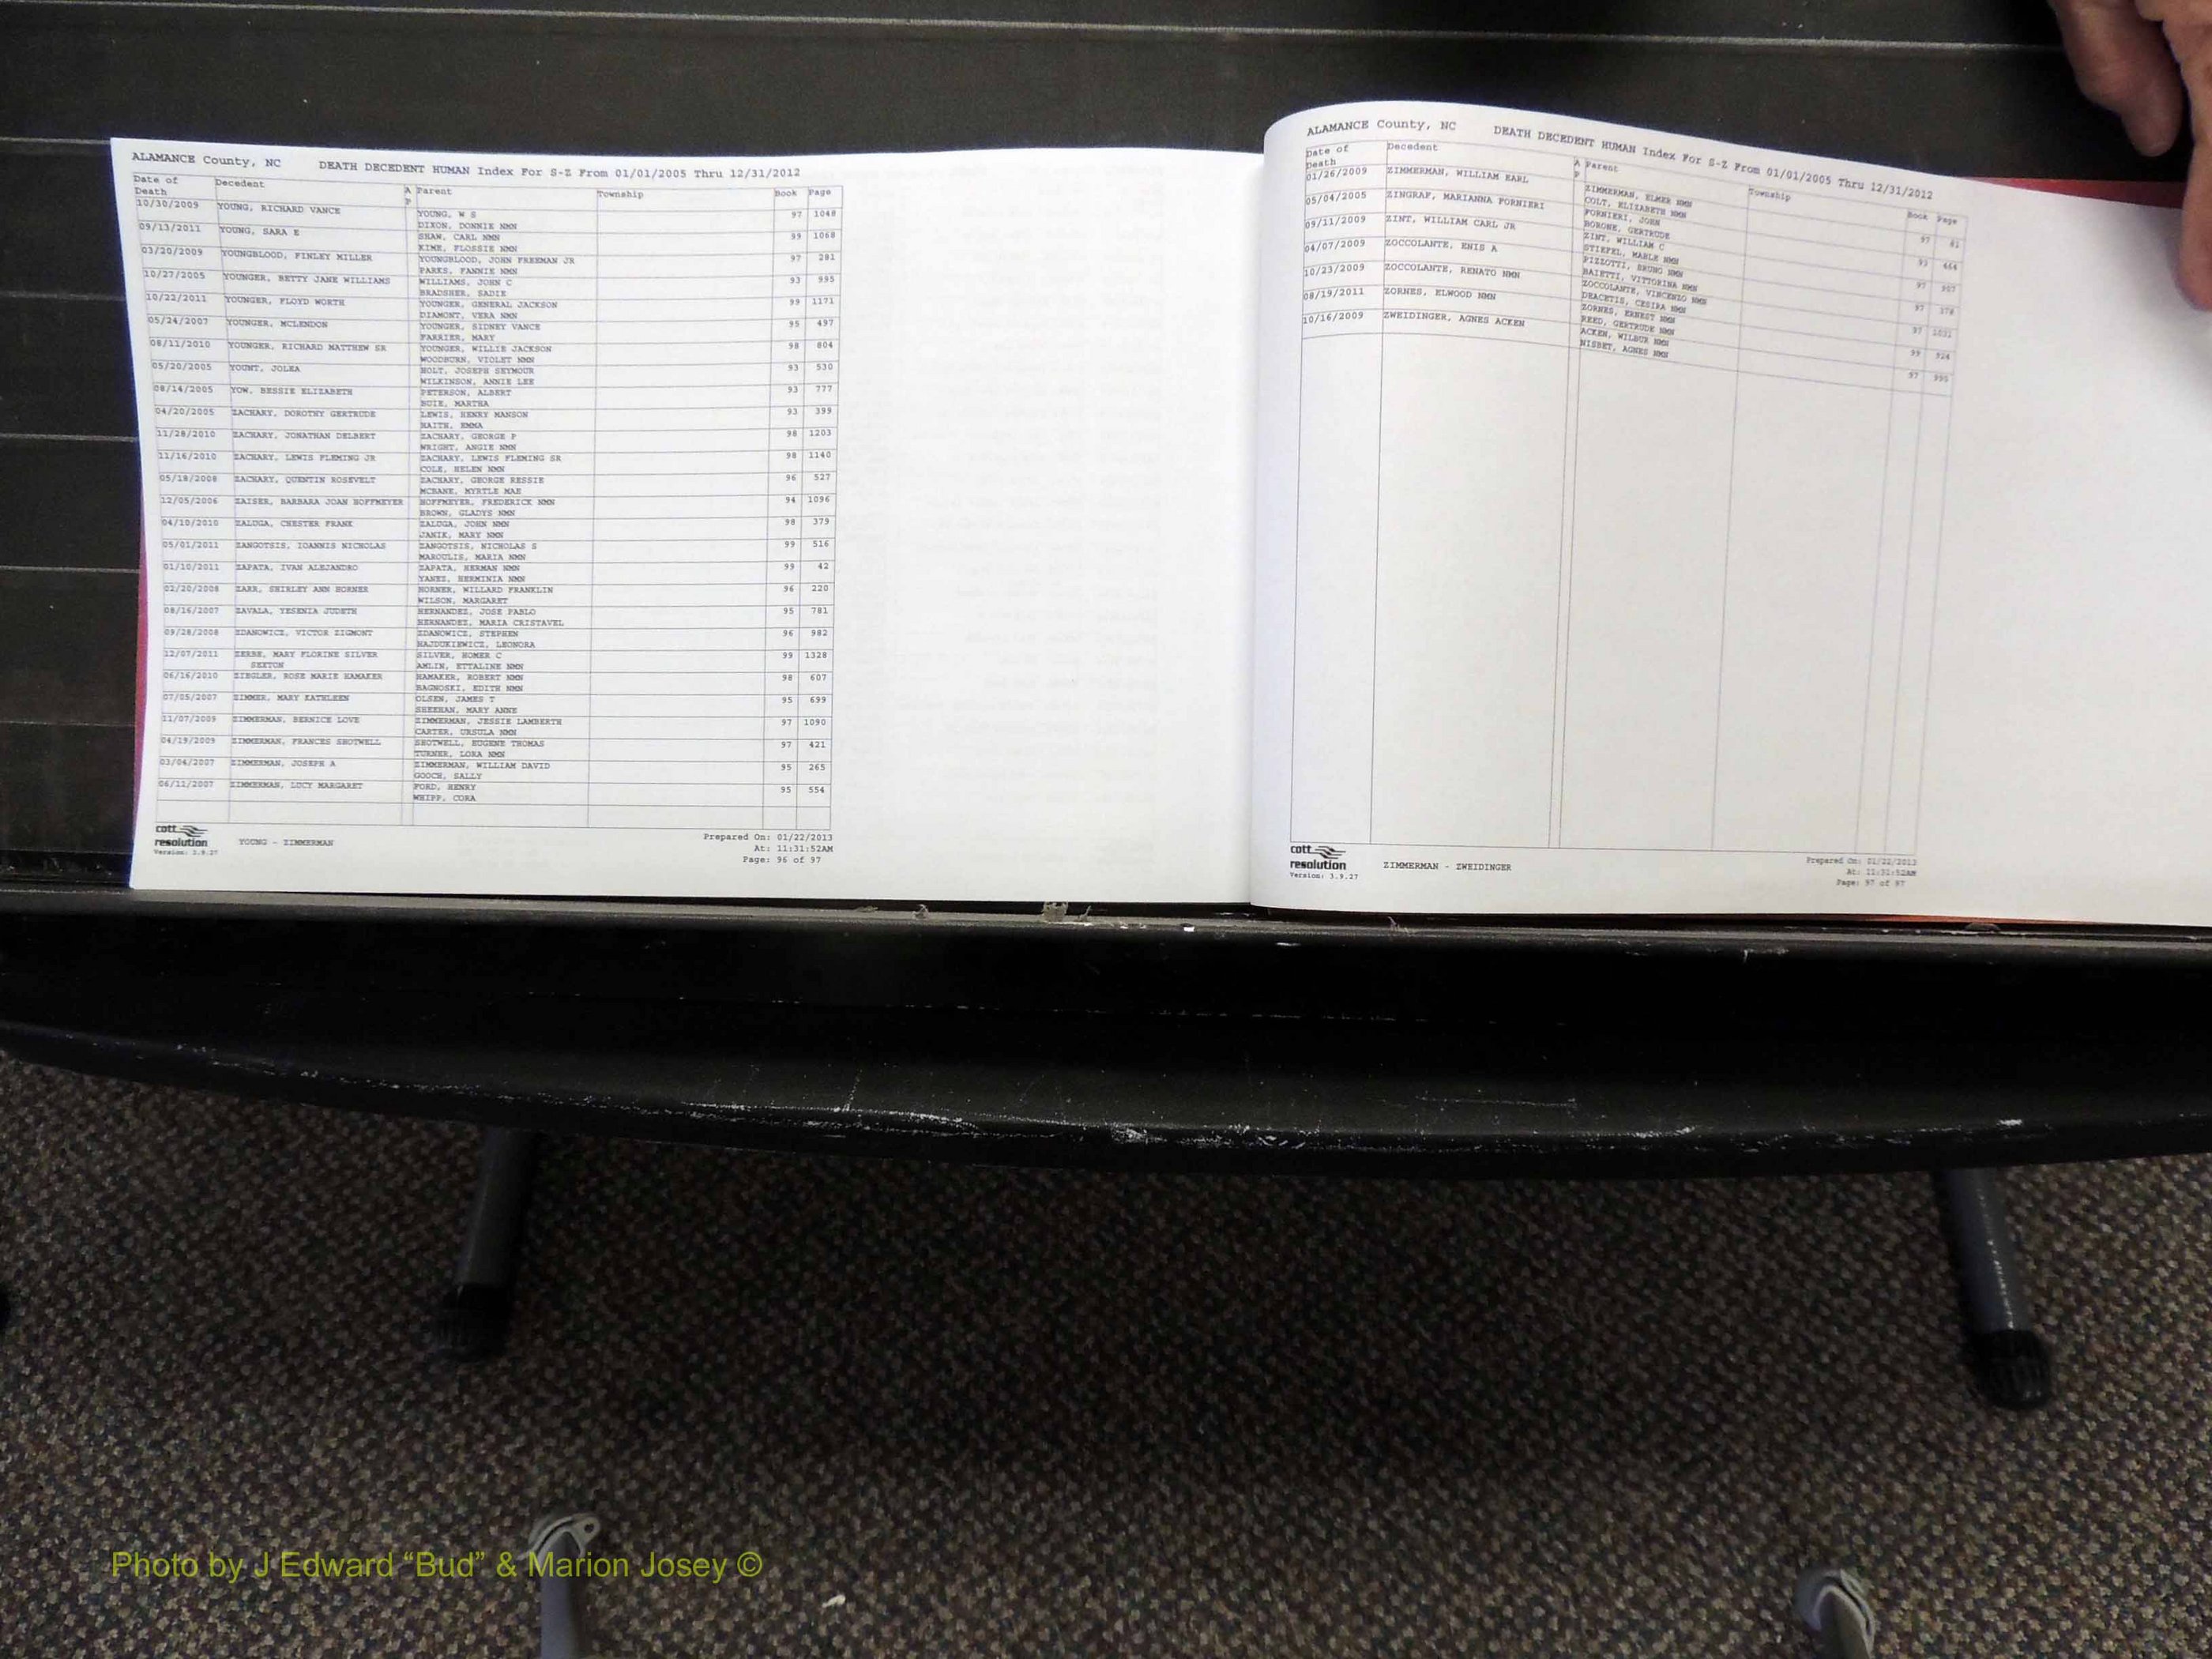 ALAMANCE County, NC DEATH DECEDENT HUMAN Index For S-Z From 01/01/2005 Thru 12/31/2012
Date of Death Decedent A P Parent Township Book Page
10/30/2009 YOUNG, RICHARD VANCE YOUNG, W S 97 1048
DIXON, DONNIE NMN
09/13/2011 YOUNG, SARA E SHAW, CARL NMN 99 1068
KIME, FLOSSIE NMN
03/20/2009 YOUNGBLOOD, FINLEY MILLER YOUNGBLOOD, JOHN FREEMAN JR 97 281
PARKS, FANNIE NMN
10/27/2005 YOUNGER, BETTY JANE WILLIAMS WILLIAMS, JOHN C 93 995
BRADSHER, SADIE
10/22/2011 YOUNGER, FLOYD WORTH YOUNGER, GENERAL JACKSON 99 1171
DIAMONT, VERA NMN
05/24/2007 YOUNGER, MCLENDON YOUNGER, SIDNEY VANCE 95 497
FARRIER, MARY
08/11/2010 YOUNGER, RICHARD MATTHEW SR YOUNGER, WILLIE JACKSON 98 804
WOODBURN, VIOLET NMN
05/20/2005 YOUNT, JOLEA HOLT, JOSEPH SEYMOUR 93 530
WILKINSON, ANNIE LEE
08/14/2005 YOW, BESSIE ELIZABETH PETERSON, ALBERT 93 777
BUIE, MARTHA
04/20/2005 ZACHARY, DOROTHY GERTRUDE LEWIS, HENRY MANSON 93 399
HAITH, EMMA
11/28/2010 ZACHARY, JONATHAN DELBERT ZACHARY, GEORGE P 98 1203
WRIGHT, ANGIE NMN
11/16/2010 ZACHARY, LEWIS FLEMING JR ZACHARY, LEWIS FLEMING SR 98 1140
COLE, HELEN NMN
05/18/2008 ZACHARY, QUENTIN ROSEVELT ZACHARY, GEORGE RESSIE 96 527
MCBANE, MYRTLE MAE
12/05/2006 ZAISER, BARBARA JOAN HOFFMEYER HOFFMEYER, FREDERICK NMN 94 1096
BROWN, GLADYS NMN
04/10/2010 ZALUGA, CHESTER FRANK ZALUGA, JOHN NMN 98 379
JANIK, MARY NMN
05/01/2011 ZANGOTSIS, IOANNIS NICHOLAS ZANGOTSIS, NICHOLAS S 99 516
MAROULIS, MARIA NMN
01/10/2011 ZAPATA, IVAN ALEJANDRO ZAPATA, HERMAN NMN 99 42
YANEZ, HERMINIA NMN
02/20/2008 ZARR, SHIRLEY ANN HORNER HORNER, WILLARD FRANKLIN 96 220
WILSON, MARGARET
08/16/2007 ZAVALA, YESENIA JUDETH HERNANDEZ, JOSE PABLO 95 781
HERNANDEZ, MARIA CRISTAVEL
09/28/2008 ZDANOWICZ, VICTOR ZIGMONT ZDANOWICZ, STEPHEN 96 982
HAJDUKIEWICZ, LEONORA
12/07/2011 ZERBE, MARY FLORINE SILVER SILVER, HOMER C 99 1328
SEXTON AMLIN, ETTALINE NMN
06/16/2010 ZIEGLER, ROSE MARIE HAMAKER HAMAKER, ROBERT NMN 98 607
BAGNOSKI, EDITH NMN
07/05/2007 ZIMMER, MARY KATHLEEN OLSEN, JAMES T 95 699
SHEEHAN, MARY ANNE
11/07/2009 ZIMMERMAN, BERNICE LOVE ZIMMERMAN, JESSIE LAMBERTH 97 1090
CARTER, URSULA NMN
04/19/2009 ZIMMERMAN, FRANCES SHOTWELL SHOTWELL, EUGENE THOMAS 97 421
TURNER, LORA NMN
03/04/2007 ZIMMERMAN, JOSEPH A ZIMMERMAN, WILLIAM DAVID 95 265
GOOCH, SALLY
06/11/2007 ZIMMERMAN, LUCY MARGARET FORD, HENRY 95 554
WHIPP, CORA
cott
resolution
Version: 3.9.27
YOUNG - ZIMMERMAN
Prepared On: 01/22/2013
At: 11:31:52AM
Page: 96 of 97
ALAMANCE County, NC DEATH DECEDENT HUMAN Index For S-Z From 01/01/2005 Thru 12/31/2012
Date of Death Decedent A P Parent Township Book Page
01/26/2009 ZIMMERMAN, WILLIAM EARL ZIMMERMAN, ELMER NMN 97 81
COLT, ELIZABETH NMN
05/04/2005 ZINGRAF, MARIANNA FORNIERI FORNIERI, JOHN 93 464
BORONE, GERTRUDE
09/11/2009 ZINT, WILLIAM CARL JR ZINT, WILLIAM C 97 907
STIEFEL, MABLE NMN
04/07/2009 ZOCCOLANTE, ENIS A PIZZOTTI, BRUNO NMN 97 378
BAIETTI, VITTORINA NMN
10/23/2009 ZOCCOLANTE, RENATO NMN ZOCCOLANTE, VINCENZO NMN 97 1031
DEACETIS, CESIRA NMN
08/19/2011 ZORNES, ELWOOD NMN ZORNES, ERNEST NMN 99 924
REED, GERTRUDE NMN
10/16/2009 ZWEIDINGER, AGNES ACKEN ACKEN, WILBUR NMN 97 995
NISBET, AGNES NMN
cott
resolution
Version: 3.9.27
ZIMMERMAN - ZWEIDINGER
Prepared On: 01/22/2013
At: 11:31:52AM
Page: 97 of 97
Photo by J Edward “Bud” & Marion Josey ©